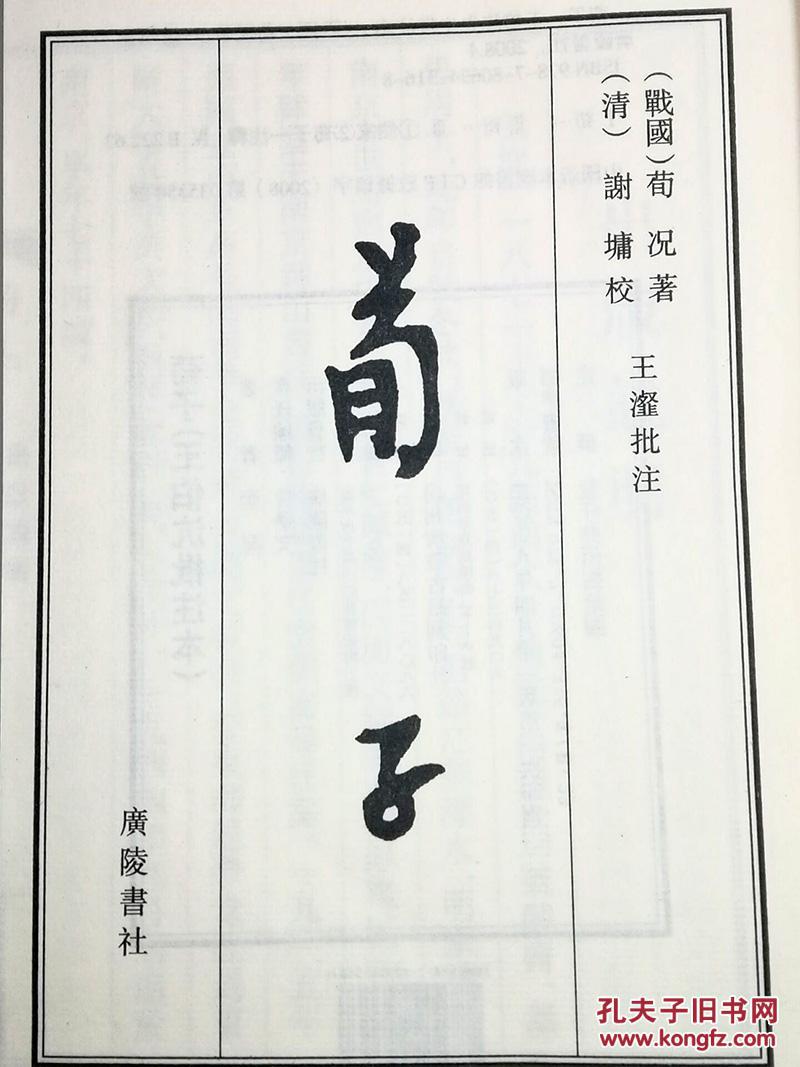 (戰國)荀况著
(清)謝墉校 王瀣批注
荀子
廣陵書社
孔夫子旧书网
www.kongfz.com